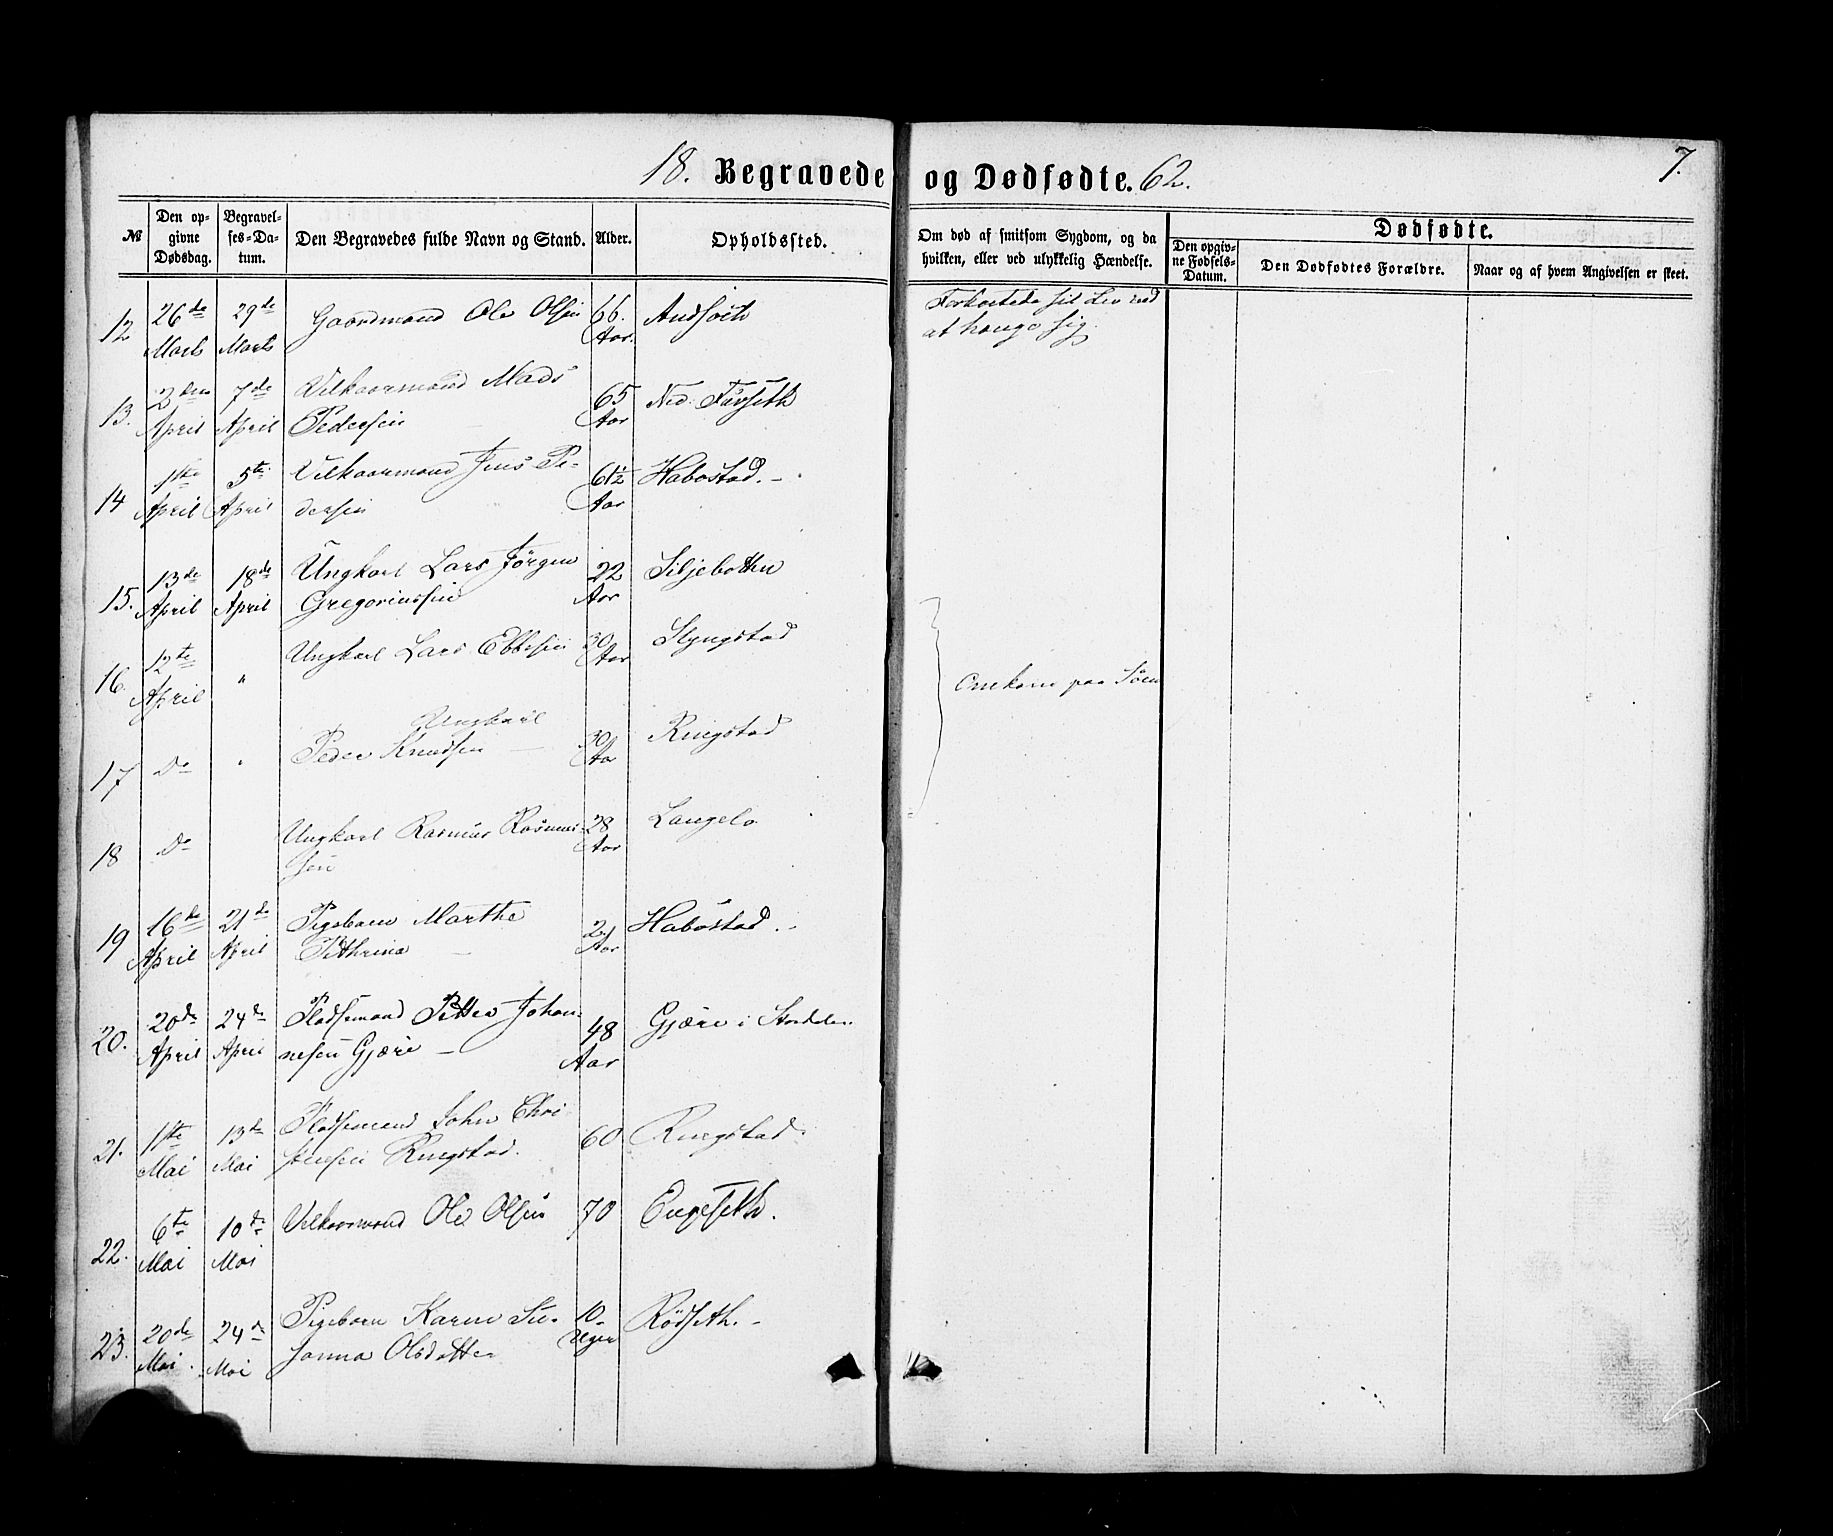 18. Begravede og Dødfødte. 62.
7.
№
Den opgivne Dødsdag.
Begravelses-Datum.
Den Begravedes fulde Navn og Stand.
Alder.
Opholdssted.
Om død af smitsom Sygdom, og da hvilken, eller ved ulykkelig Hændelse.
Dødfødte.
Den opgivne Fødsels-Datum.
Den Dødfødtes Forældre.
Naar og af hvem Angivelsen er skeet.
12 26de Marts 29de Marts Gaardmand Ole Olsen 66. Aar.
Forkortede sit Liv ved
at hænge sig.
13. 3den April 7de April Vilkaarmand Mads
Pedersen 65 Aar Ned:
14 1ste April 5te April Vilkaarmand Jens Pe-
dersen 61½ Aar Habostad.
15. 13de April 18de April Ungkarl Lars Jörgen
Gregoriussen 22 Aar Siljebotten
16. 12te April " Ungkarl Lars Ebbesen 30 Aar Slyngstad
Omkom paa Söen
17 Do " Ungkarl
Peder Knudsen 30 Aar Ringstad
18 Do Ungkarl Rasmus Rasmus-
sen 28 Aar Langelo
19 16de April 21de April Pigebarn Marthe
Pethrina 2 Aar Habostad.
20. 20de April 24de April Pladsemand Petter Johan-
nesen Gjære 48 Aar Gjære i Stordalen
21. 1ste Mai 13de Mai Pladsemand John Chri-
stensen Ringstad. 60 Ringstad
22. 6te Mai 10de Mai Vilkaarmand Ole Olsen 70 Engeseth.
23. 20de Mai 24de Mai Pigebarn Karen Su-
sanna Olsdatter 10 Uger Rödseth.